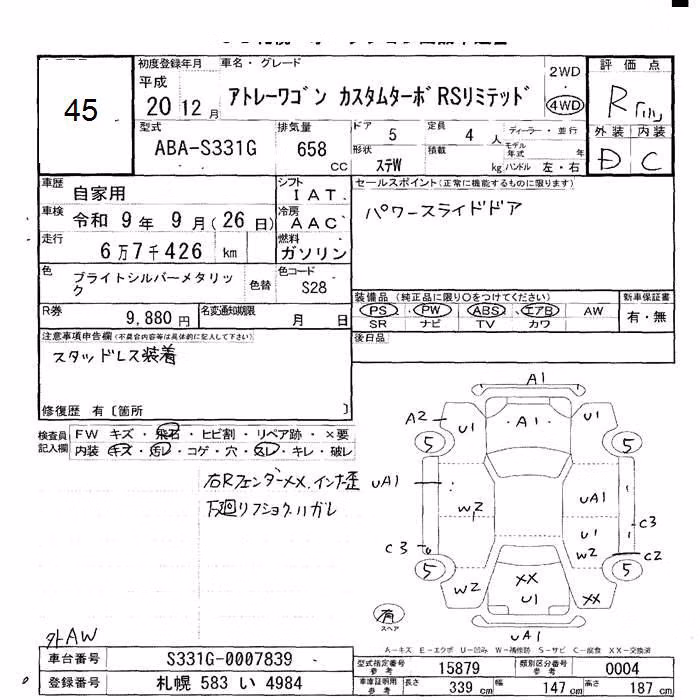 45
初度登録年月 車名・グレード
平成
20 12月
アトレーワゴン カスタムターボRSリミテッド
2WD
4WD
評価点
R
外装 内装
D C
型式
ABA-S331G
排気量
658 CC
ドア 5
定員 4 人
ディーラー・並行
形状 ステW
積載 kg
モデル年式 年
ハンドル 左・右
車歴 自家用
シフト IAT
車検 令和 9年 9月(26日)
冷房 AAC
走行 6万7千426 km
燃料 ガソリン
色 ブライトシルバーメタリック
色替
色コード S28
R券 9,880円
名変通知期限 月 日
セールスポイント(正常に機能するものに限ります)
パワースライドドア
装備品 (純正品に限り○をつけてください)
PS・PW ABS・エアB AW
SR ナビ TV カワ
新車保証書
有・無
後日品
注意事項申告欄(不具合内容等は具体的に記入して下さい)
スタッドレス装着
修復歴 有〔箇所 〕
検査員記入欄
FW キズ・飛石・ヒビ割・リペア跡・×要
内装・キズ・汚レ・コゲ・穴・スレ・キレ・破レ
右RフェンダーXX.インナ歪
下廻リフショクハガレ
A1
A2
U1
A1
U1
5
5
UA1
W2
UA1
C3
U1
W2
C3
C2
5
5
W2
XX
U1
XX
UA1
有
スペア
A-キズ E-エクボ U-凹み W-補修跡 S-サビ C-腐食 XX-交換済
外AW
車台番号 S331G-0007839
登録番号 札幌 583 い 4984
型式指定番号 参考 15879
類別区分番号 参考 0004
車庫証明用 参考
長さ 339 cm
幅 147 cm
高さ 187 cm